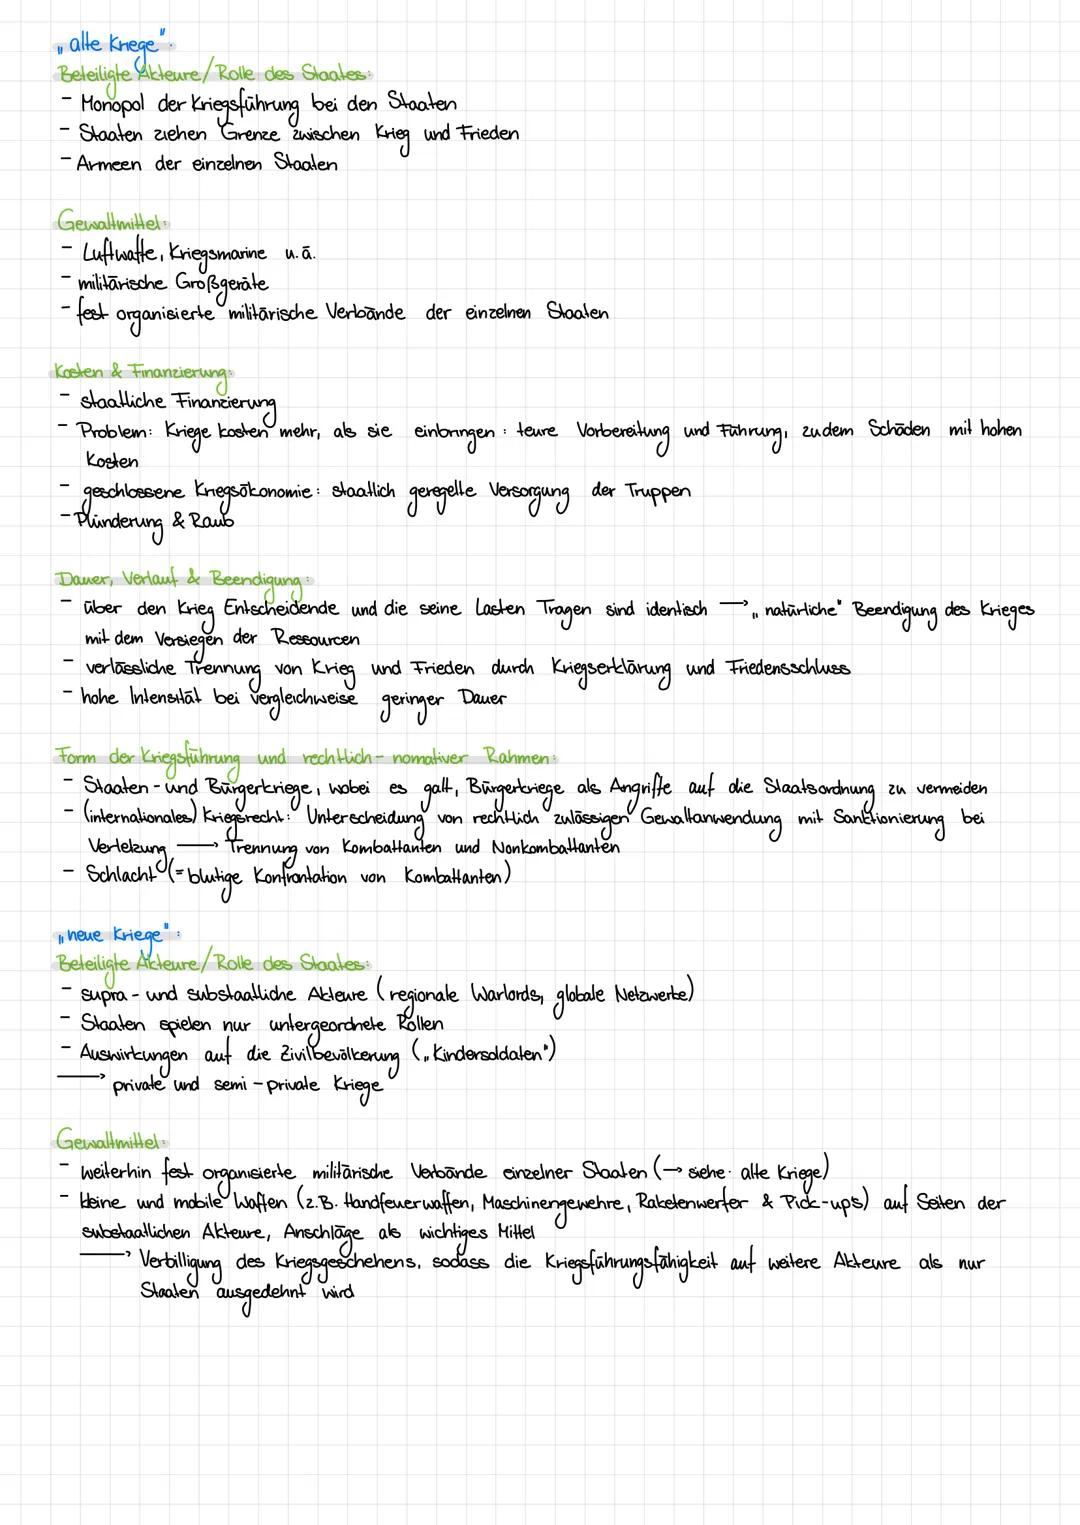 „alte Kriege":
Beteiligte Akteure/Rolle des Staates:
- Monopol der Kriegsführung bei den Staaten
- Staaten ziehen Grenze zwischen Krieg und Frieden
- Armeen der einzelnen Staaten
Gewaltmittel:
- Luftwaffe, Kriegsmarine u.ä.
- militärische Großgeräte
- fest organisierte militärische Verbände der einzelnen Staaten
Kosten & Finanzierung:
- staatliche Finanzierung
- Problem: Kriege kosten mehr, als sie einbringen: teure Vorbereitung und Führung, zudem Schäden mit hohen
Kosten
- geschlossene Kriegsökonomie: staatlich geregelte Versorgung der Truppen
- Plünderung & Raub
Dauer, Verlauf & Beendigung:
- über den Krieg Entscheidende und die seine Lasten Tragen sind identisch → „natürliche" Beendigung des Krieges
mit dem Versiegen der Ressourcen
- verlässliche Trennung von Krieg und Frieden durch Kriegserklärung und Friedensschluss
- hohe Intensität bei vergleichweise geringer Dauer
Form der Kriegsführung und rechtlich-nomativer Rahmen:
- Staaten- und Bürgerkriege, wobei es galt, Bürgerkriege als Angriffe auf die Staatsordnung zu vermeiden
- (internationales) Kriegsrecht: Unterscheidung von rechtlich zulässigen Gewaltanwendung mit Sanktionierung bei
Verletzung → Trennung von Kombattanten und Nonkombattanten
- Schlacht (= blutige Konfrontation von Kombattanten)
„neue Kriege":
Beteiligte Akteure/Rolle des Staates:
- supra- und substaatliche Akteure (regionale Warlords, globale Netzwerke)
- Staaten spielen nur untergeordnete Rollen
- Auswirkungen auf die Zivilbevölkerung („Kindersoldaten")
→ private und semi-private Kriege
Gewaltmittel:
- weiterhin fest organisierte militärische Verbände einzelner Staaten (→ siehe: alte Kriege)
- kleine und mobile Waffen (z.B. Handfeuerwaffen, Maschinengewehre, Raketenwerfer & Pick-ups) auf Seiten der
substaatlichen Akteure, Anschläge als wichtiges Mittel
→ Verbilligung des Kriegsgeschehens, sodass die Kriegsführungsfähigkeit auf weitere Akteure als nur
Staaten ausgedehnt wird